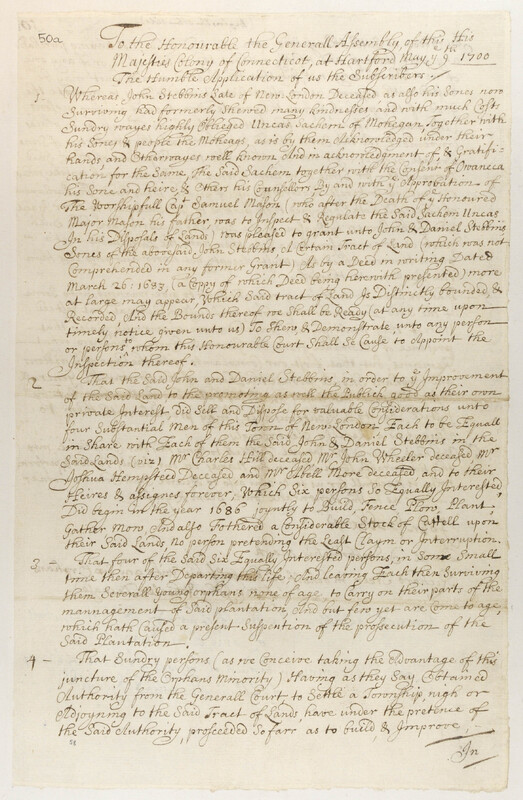 50a
To the Honourable the Generall Assembly, of this His
Majesties Colony of Connecticot, at Hartford May ye 9th 1700
The Humble Application of us the Subscribers
1 Whereas John Stebbins Late of New London Deceased as also his Sones now
Surviving had formerly shewed many kindnesses and with much Cost
Sundry wayes highly Oblieged Uncas Sachem of Mohegan Together with
his Sones & people the Moheags, as is by them Acknowledged under their
hands and Otherwayes well known And in acknowledgment of & Gratifi-
cation for the Same, The Said Sachem together with the Consent of Owaneca
his Sone and heire & Other his Counsellors By and with ye Approbation of
The Worshipfull Capt Samuel Mason (who after the Death of ye Honoured
Major Mason his father was to Inspect & Regulate the Said Sachem Uncas
In his Disposals of Lands) was pleased to grant unto John & Daniel Stebbins
Sones of the abovesaid John Stebbins A Certain Tract of Land (which was not
Comprehended in any former Grant) As by a Deed in writing Dated
March 26: 1683 (a Coppy of which Deed being herewith presented) more
at large may appear, Which Said tract of Land Is Distinctly bounded, &
Recorded, And the Bounds thereof we Shall be Ready (at any time upon
timely notice given unto us) To Shew & Demonstrate unto any person
or persons whom this Honourable Court Shall Se Cause to Appoint the
Inspection thereof.
2 That the Said John and Daniel Stebbins, in order to ye Improvement
of the Said Land to the promoting as well the Publick good as their own
private Interest, Did Sell and Dispose for valuable Considerations unto
four Substantial Men of this Town of New London Each to be Equall
in Share with Each of them the Said John & Daniel Stebbins in the
Said Lands (viz) Mr Charles Hill deceased Mr John Wheeler deceased Mr
Joshua Hempsteed Deceased and Mr More deceased and to their
Heires & assignes forever, Which Six persons So Equally Interested
Did begin in the year 1686 joyntly to Build, Fence Plow, Plant,
Gather Mow, And also Fothered a Considerable Stock of Cattell upon
their Said Lands No person pretending the Least Claym or Interruption.
3 - That four of the Said Six Equally Interested persons, in Some Small
time then after Departing this life, And leaving Each then Surviving
them Severall Young orphans none of age to Carry on their parts of the
mannagement of Said plantation, And but few yet are Come to age
which hath Caused a present Suspention of the prossecution of the
Said Plantation
4 - That Sundry persons (as we Conceive taking the Advantage of this
juncture of the Orphans Minority) Having as they Say Obtained
Authority from the Generall Court to Settle a Township nigh or
Adjoyning to the Said Tract of Lands, have under the pretence of
the Said Authority, prosceeded So farr as to build & Improve,
In